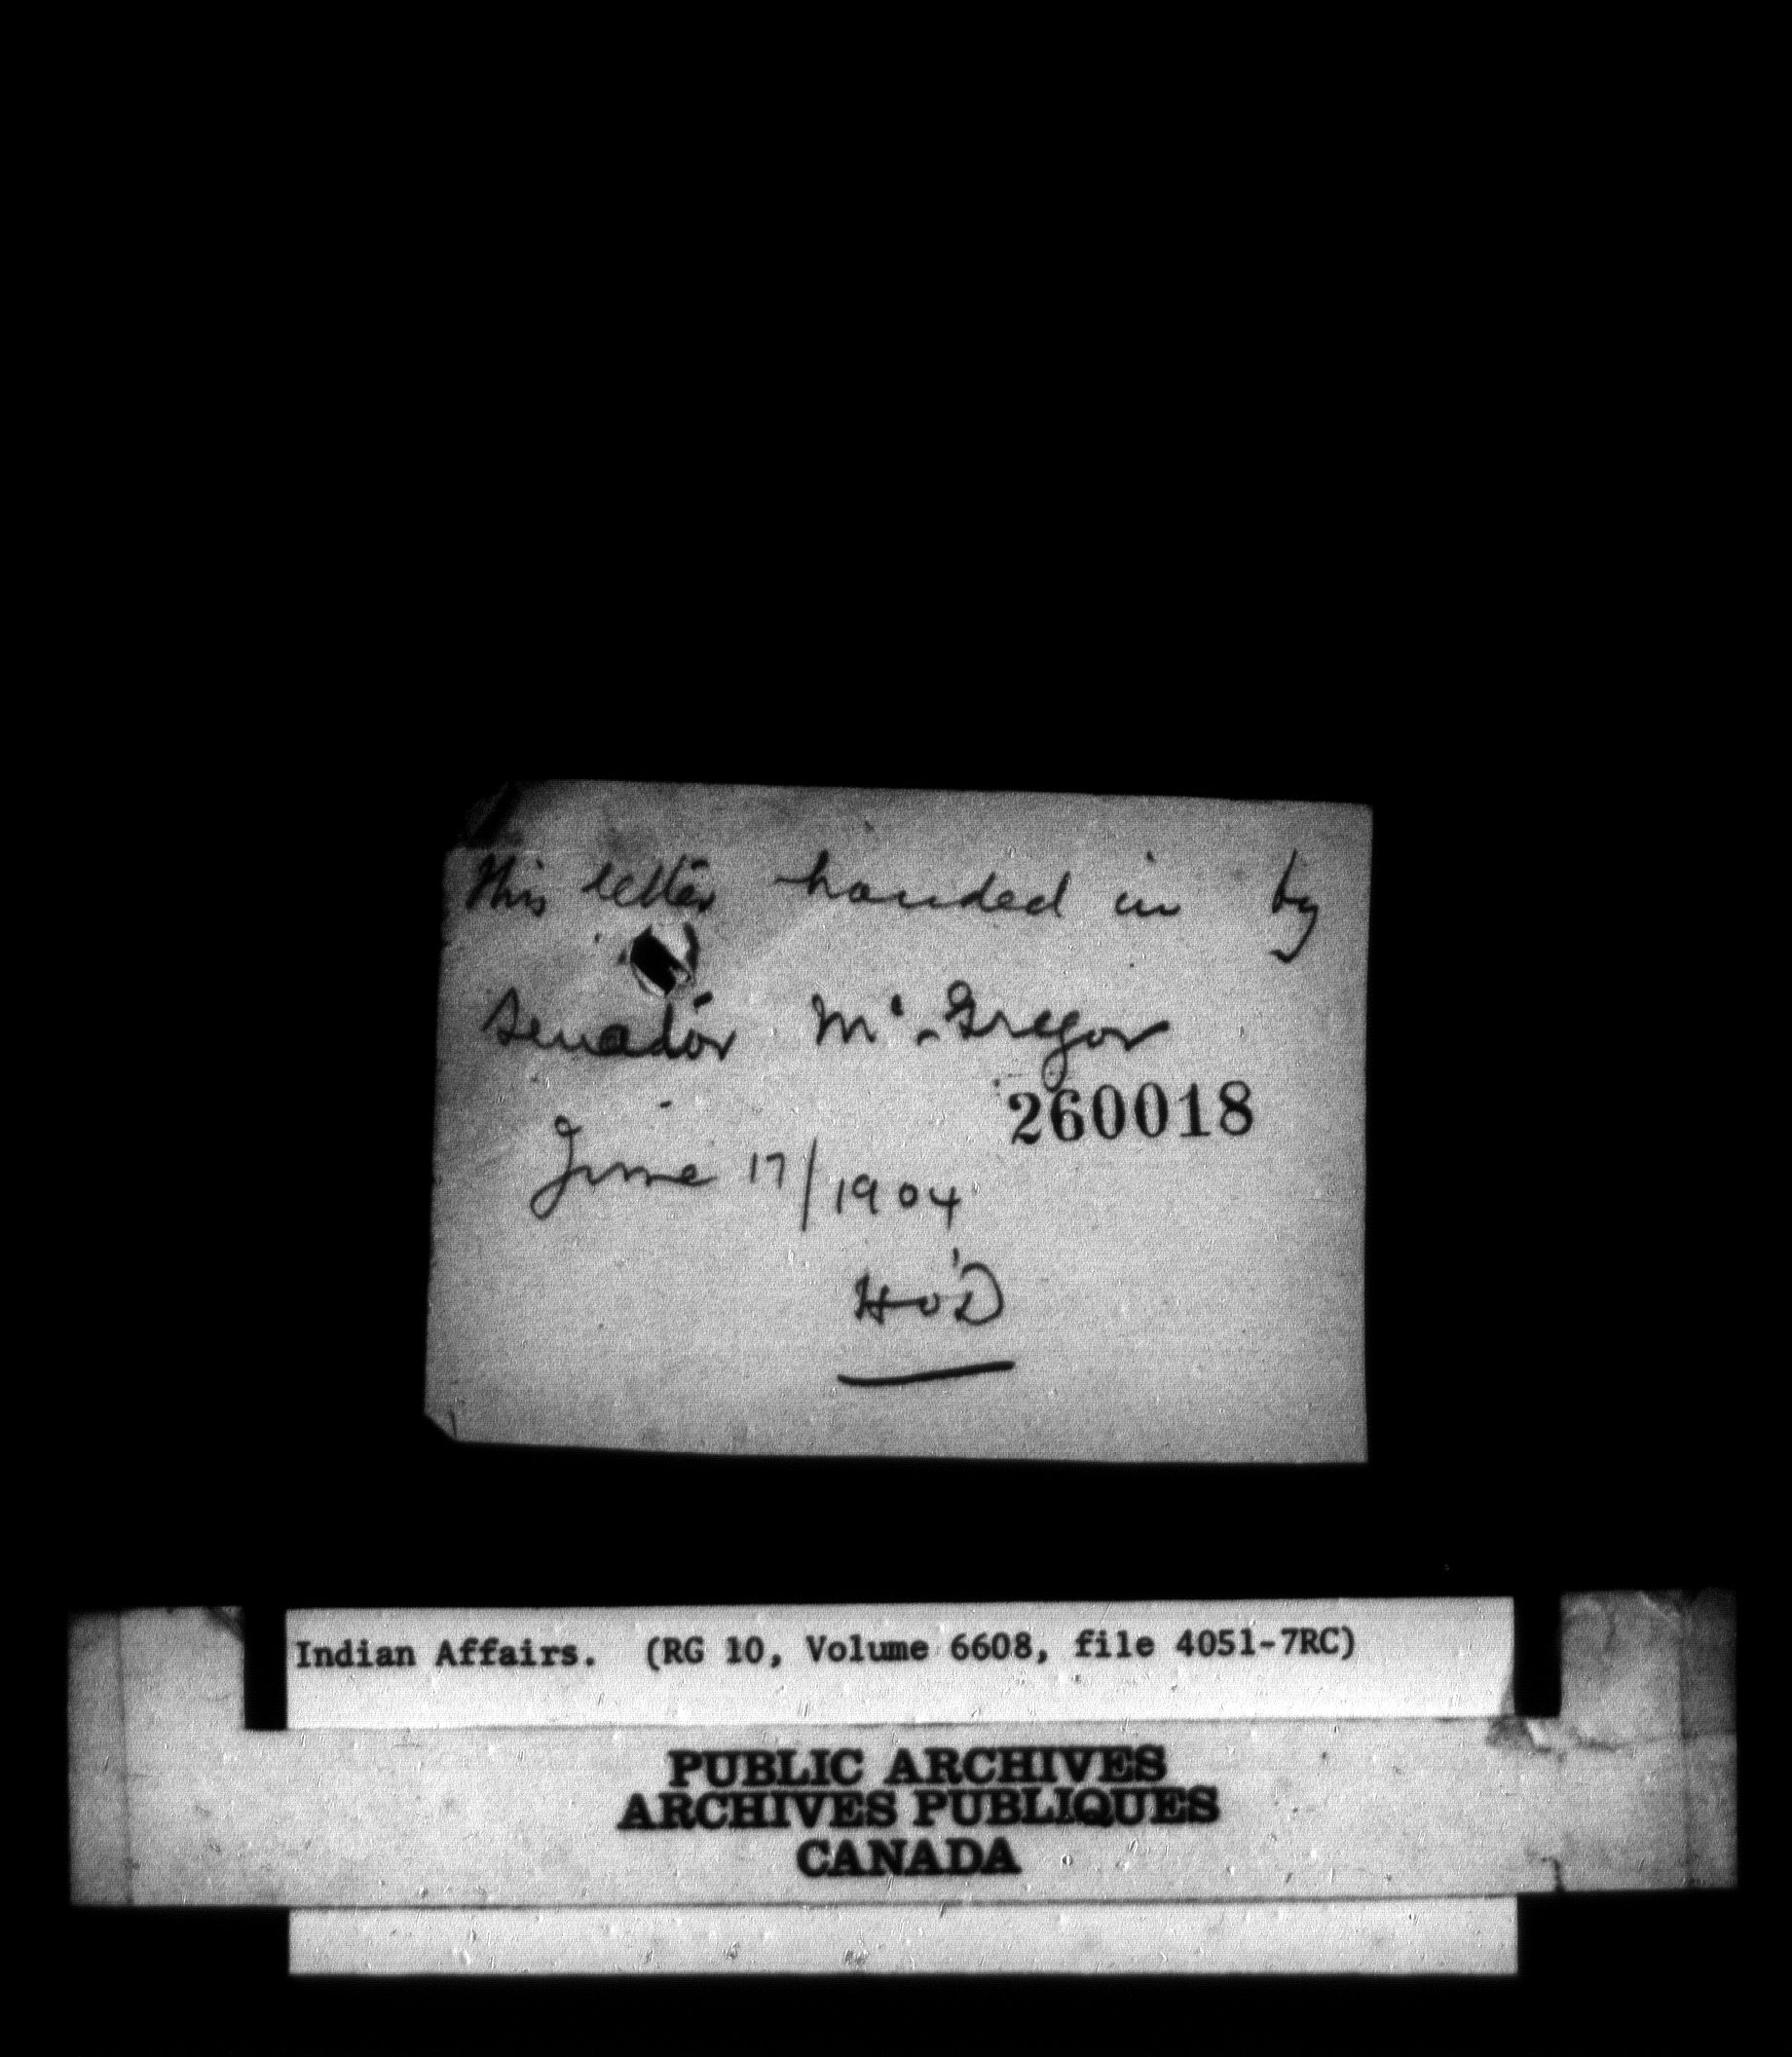 This letter handed in by
Senator Mc. Gregor
260018
June 17/1904
HO'D
Indian Affairs. (RG 10, Volume 6608, file 4051-7RC)
PUBLIC ARCHIVES
ARCHIVES PUBLIQUES
CANADA